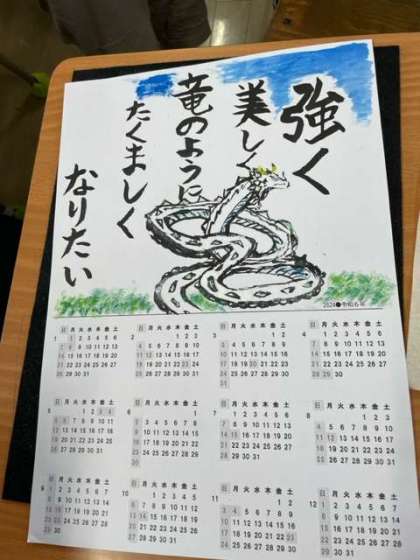 強く
美しく
竜のように
たくましく
なりたい
2024●令和6年
1
日 月 火 水 木 金 土
1 2 3 4 5 6
7 8 9 10 11 12 13
14 15 16 17 18 19 20
21 22 23 24 25 26 27
28 29 30 31
2
日 月 火 水 木 金 土
1 2 3
4 5 6 7 8 9 10
11 12 13 14 15 16 17
18 19 20 21 22 23 24
25 26 27 28 29
3
日 月 火 水 木 金 土
1 2
3 4 5 6 7 8 9
10 11 12 13 14 15 16
17 18 19 20 21 22 23
24 25 26 27 28 29 30
31
4
日 月 火 水 木 金 土
1 2 3 4 5 6
7 8 9 10 11 12 13
14 15 16 17 18 19 20
21 22 23 24 25 26 27
28 29 30
5
日 月 火 水 木 金 土
1 2 3 4
5 6 7 8 9 10 11
12 13 14 15 16 17 18
19 20 21 22 23 24 25
26 27 28 29 30 31
6
日 月 火 水 木 金 土
1
2 3 4 5 6 7 8
9 10 11 12 13 14 15
16 17 18 19 20 21 22
23 24 25 26 27 28 29
30
7
日 月 火 水 木 金 土
1 2 3 4 5 6
7 8 9 10 11 12 13
14 15 16 17 18 19 20
21 22 23 24 25 26 27
28 29 30 31
8
日 月 火 水 木 金 土
1 2 3
4 5 6 7 8 9 10
11 12 13 14 15 16 17
18 19 20 21 22 23 24
25 26 27 28 29 30 31
9
日 月 火 水 木 金 土
1 2 3 4 5 6 7
8 9 10 11 12 13 14
15 16 17 18 19 20 21
22 23 24 25 26 27 28
10
日 月 火 水 木 金 土
1 2 3 4 5
6 7 8 9 10 11 12
13 14 15 16 17 18 19
20 21 22 23 24 25 26
11
日 月 火 水 木 金 土
1 2
3 4 5 6 7 8 9
10 11 12 13 14 15 16
17 18 19 20 21 22 23
12
日 月 火 水 木 金 土
1 2 3 4 5 6 7
8 9 10 11 12 13 14
15 16 17 18 19 20 21